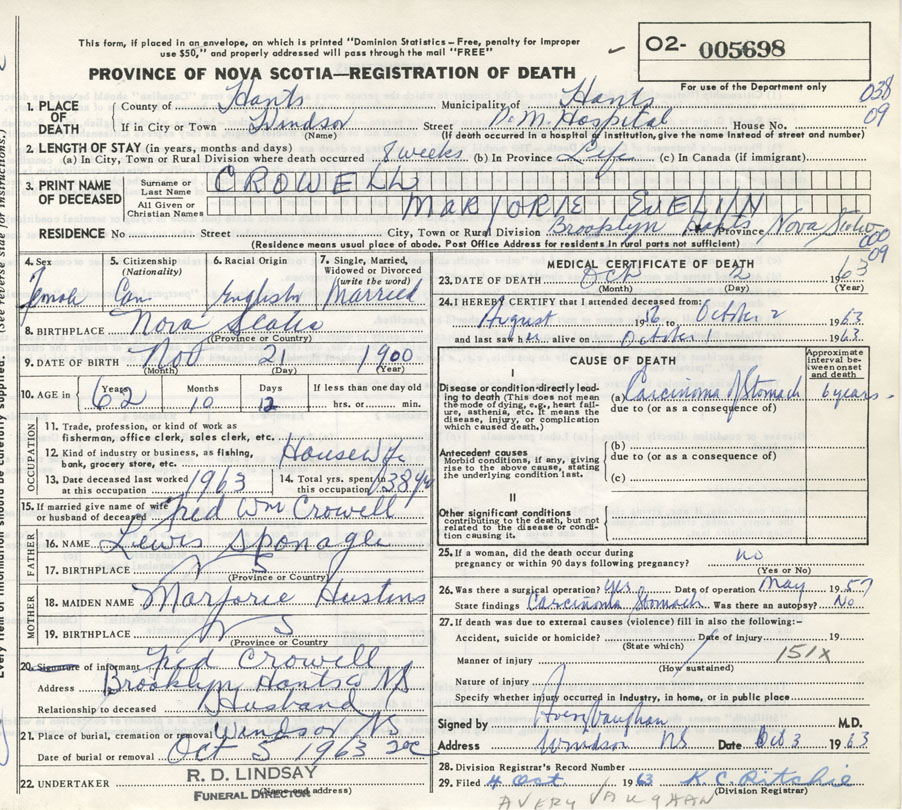 This form, if placed in an envelope, on which is printed "Dominion Statistics – Free, penalty for improper
use $50," and properly addressed will pass through the mail "FREE"
O2- 005698
PROVINCE OF NOVA SCOTIA—REGISTRATION OF DEATH
For use of the Department only
038
09
1. PLACE OF DEATH
County of Hants Municipality of Hants
If in City or Town Windsor Street P.M. Hospital House No.
(Name) (If death occurred in a hospital or institution, give the name instead of street and number)
2. LENGTH OF STAY (in years, months and days)
(a) In City, Town or Rural Division where death occurred 8 weeks (b) In Province Life (c) In Canada (if immigrant)
3. PRINT NAME OF DECEASED
Surname or Last Name CROWELL
All Given or Christian Names MARJORIE EVELIN
RESIDENCE No Street City, Town or Rural Division Brooklyn Hants Province Nova Scotia
(Residence means usual place of abode. Post Office Address for residents in rural parts not sufficient)
000
09
4. Sex Female
5. Citizenship (Nationality) Can
6. Racial Origin English
7. Single, Married, Widowed or Divorced (write the word) Married
8. BIRTHPLACE Nova Scotia
(Province or Country)
9. DATE OF BIRTH Nov 21 1900
(Month) (Day) (Year)
10. AGE in Years 62 Months 10 Days 12 If less than one day old
hrs. or min.
OCCUPATION
11. Trade, profession, or kind of work as
fisherman, office clerk, sales clerk, etc.
12. Kind of industry or business, as fishing,
bank, grocery store, etc. Housewife
13. Date deceased last worked at this occupation 1963
14. Total yrs. spent in this occupation 38 yrs
15. If married give name of wife or husband of deceased Fred Wm Crowell
FATHER
16. NAME Lewis Sponagle
17. BIRTHPLACE N S
(Province or Country)
MOTHER
18. MAIDEN NAME Marjorie Hustins
19. BIRTHPLACE N S
(Province or Country
20. Signature of informant Fred Crowell
Address Brooklyn Hants Co NS
Relationship to deceased Husband
21. Place of burial, cremation or removal Windsor NS
Date of burial or removal Oct 5 1963
22. UNDERTAKER R. D. LINDSAY
FUNERAL DIRECTOR
(Name and address)
MEDICAL CERTIFICATE OF DEATH
23. DATE OF DEATH Oct 2 1963
(Month) (Day) (Year)
24. I HEREBY CERTIFY that I attended deceased from:
August 1956 to October 2 1963
and last saw her alive on October 1 1963
CAUSE OF DEATH
Approximate interval between onset and death
I
Disease or condition directly leading to death (This does not mean the mode of dying, e.g., heart failure, asthenia, etc. It means the disease, injury, or complication which caused death.)
(a) Carcinoma of Stomach 6 years
due to (or as a consequence of)
(b)
due to (or as a consequence of)
Antecedent causes
Morbid conditions, if any, giving rise to the above cause, stating the underlying condition last.
(c)
II
Other significant conditions
contributing to the death, but not related to the disease or condition causing it.
25. If a woman, did the death occur during
pregnancy or within 90 days following pregnancy? no
(Yes or No)
26. Was there a surgical operation? Yes Date of operation May 1957
State findings Carcinoma Stomach Was there an autopsy? No
27. If death was due to external causes (violence) fill in also the following:–
Accident, suicide or homicide? Date of injury 19
(State which)
151X
Manner of injury
(How sustained)
Nature of injury
Specify whether injury occurred in industry, in home, or in public place
Signed by Avery Vaughan M.D.
Address Windsor NS Date Oct 3 1963
28. Division Registrar's Record Number
29. Filed 4 Oct 1963 K C Ritchie
(Division Registrar)
AVERY VAUGHAN